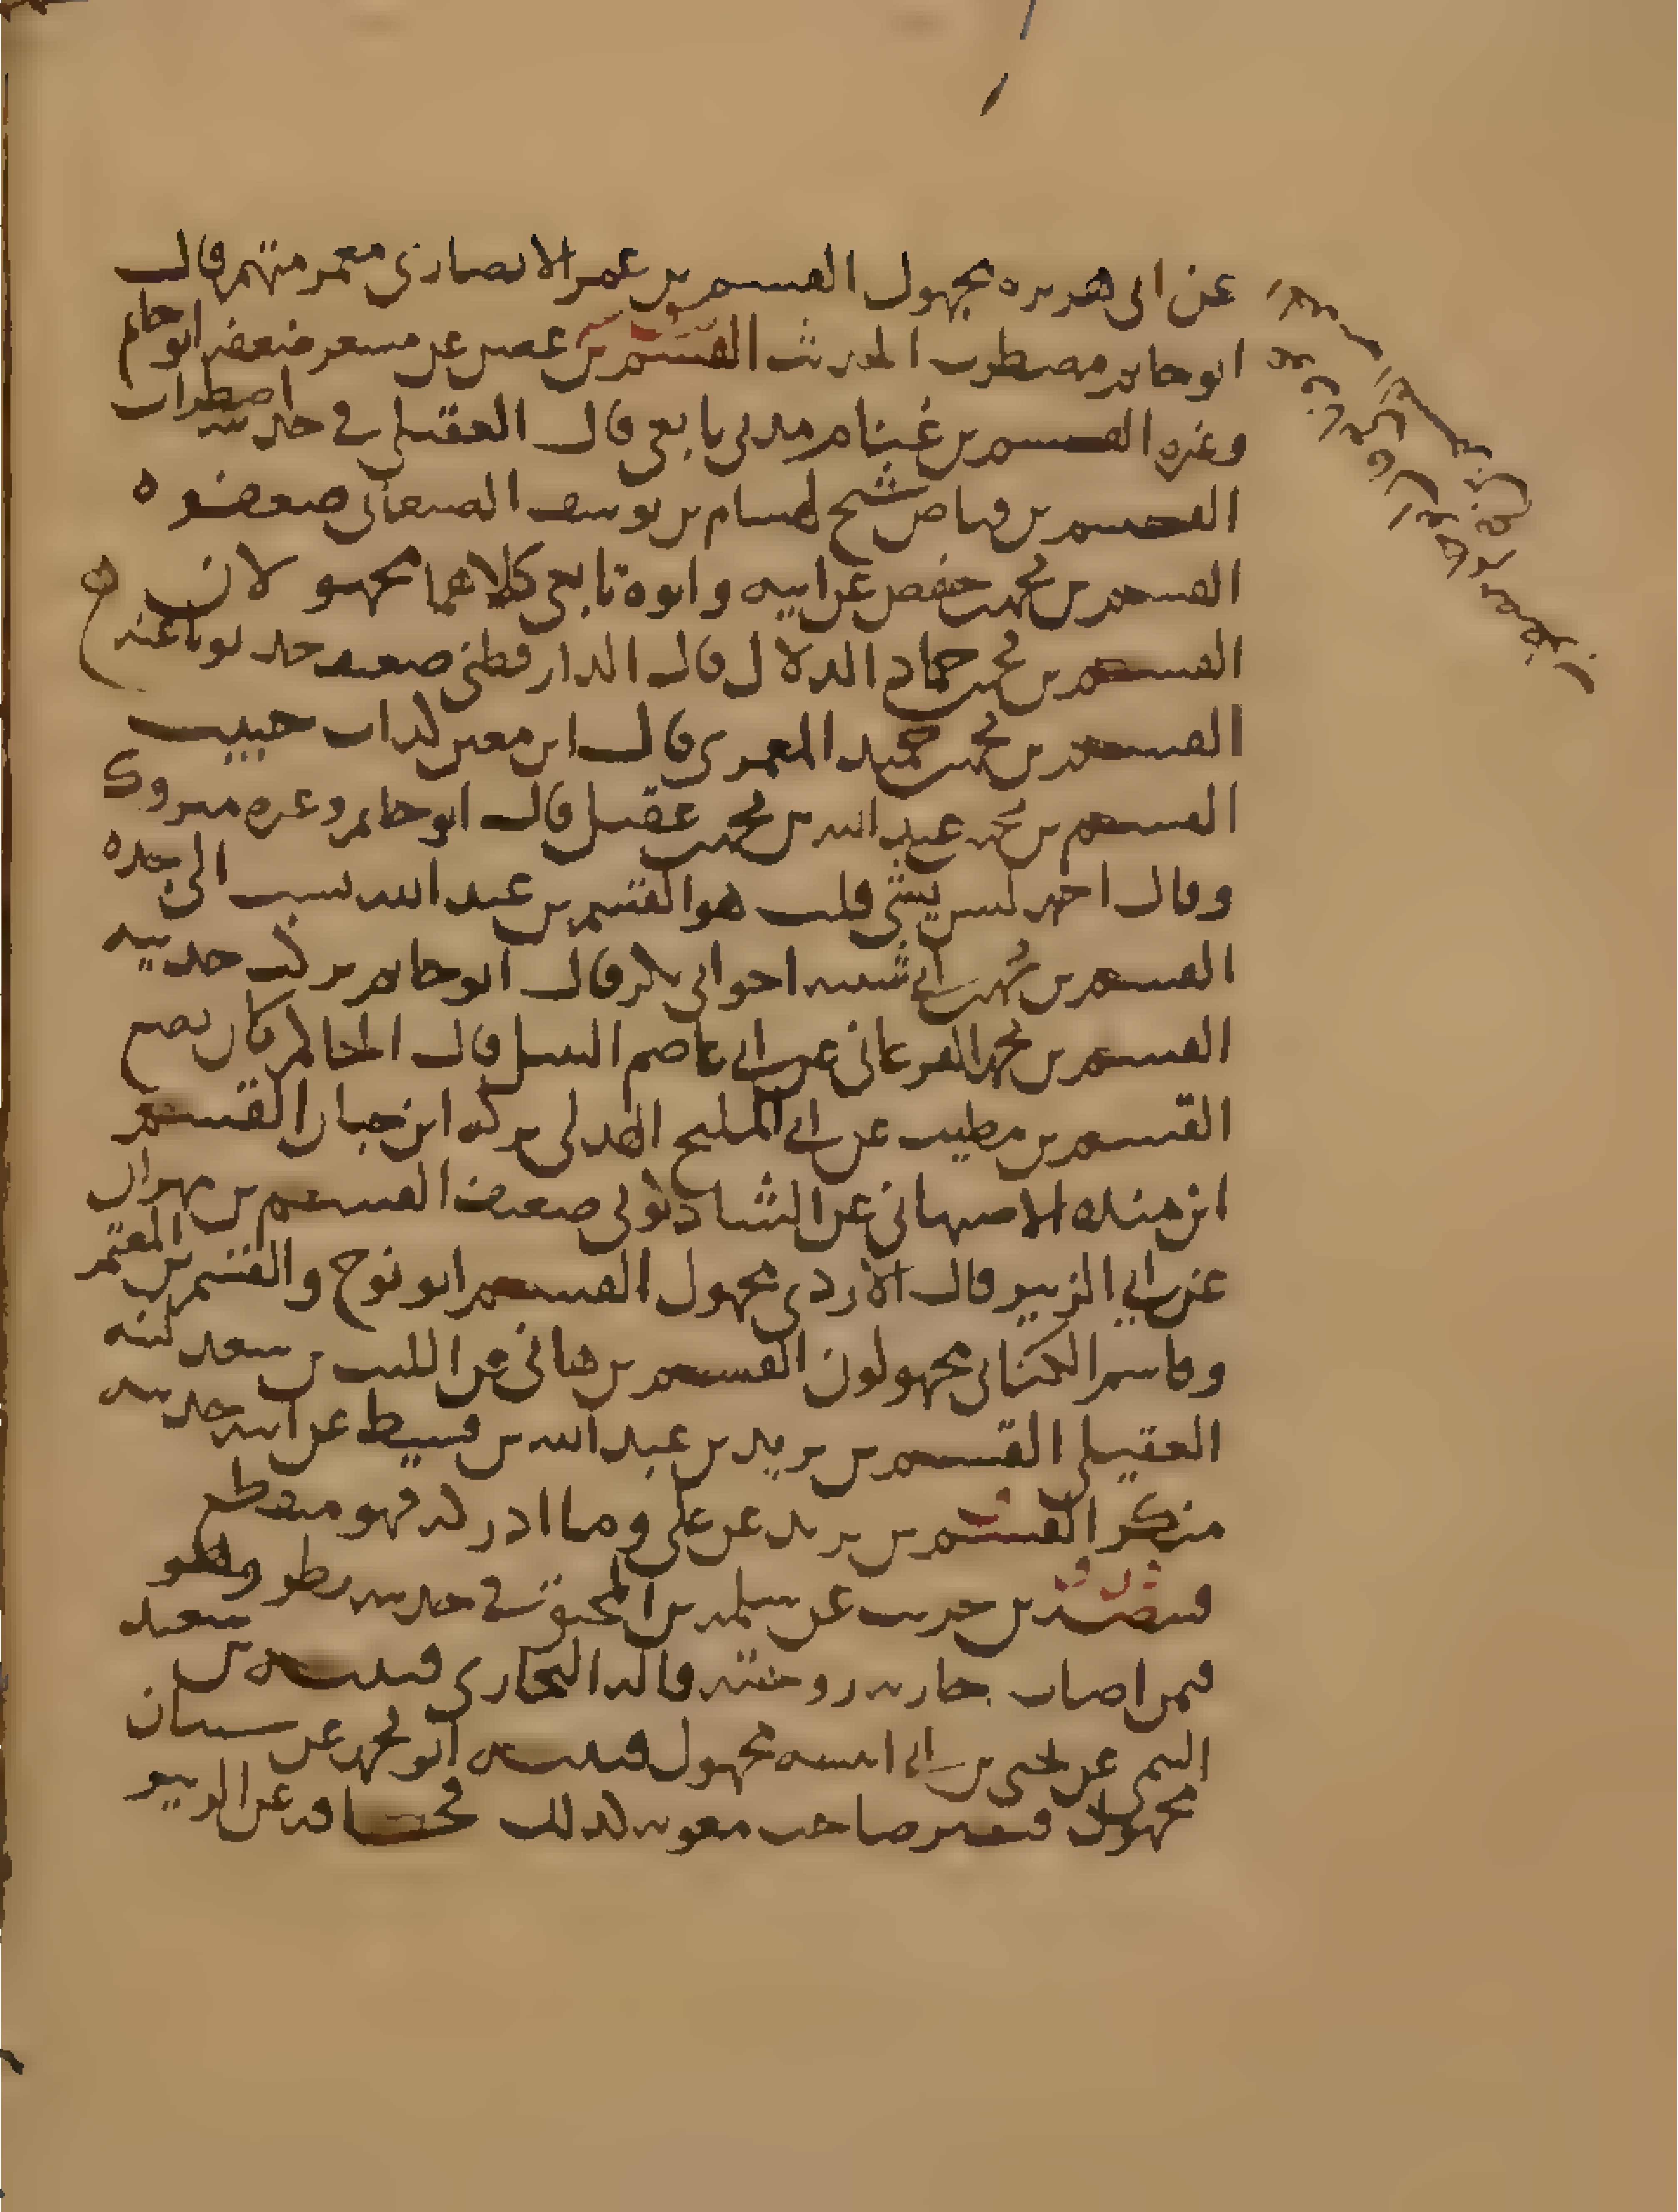 عن ابى هريره مجهول القسم بن عمر الانصارى معمر متهم قال
ابو حاتم مضطرب الحديث القسم بن غصن عن مسعر ضعفه ابو حاتم
وغيره القسم بن غنام مدنى تابعى قال العقيلى في حديثه اضطراب
القسم بن فياض شيخ لهشام بن يوسف الصنعانى ضعفوه
القسم بن محمد بن حفص عن ابيه وابوه تابعى كلاهما مجهولان
القسم بن محمد بن حماد الدلال قال الدارقطنى ضعيف حدثونا عنه
القسم بن محمد بن حميد المعمرى قال ابن معين كذاب خبيث
القسم بن محمد بن عبد الله بن محمد بن عقيل قال ابو حاتم وغيره متروك
وقال احمد ليس بشئ قلت هو القسم بن عبد الله نسب الى جده
القسم بن محمد بن ابي شيبه اخو ابى بكر قال ابو حاتم تركت حديثه
القسم بن محمد الفرغانى عن ابي عاصم النبيل قال الحاكم كان يضع
القسم بن مطيب عن ابي المليح الهذلى تركه ابن حبان القسم
ابن منده الاصبهانى عن الشاذكونى ضعيف القسم بن مهران
عن ابي الزبير قال الازدى مجهول القسم ابو نوح والقسم بن المعتمر
وقاسم الكنانى مجهولون القسم بن هانى عن الليث بن سعد لينه
العقيلى القسم بن يزيد بن عبد الله بن قسيط عن ابيه حديثه
منكر القسم بن يزيد عن على وما ادركه فهو منقطع
قبيصه بن حريث عن سلمه بن المحبق في حديثه نظر وهو
فمن اصاب جاريه زوجته قاله البخارى قتيبه بن سعيد
التيمى عن يحيى بن ابي انيسه مجهول قتيبه ابو محمد عن سنان
مجهول قنبر صاحب معويه كذلك قحافه عن الزبير